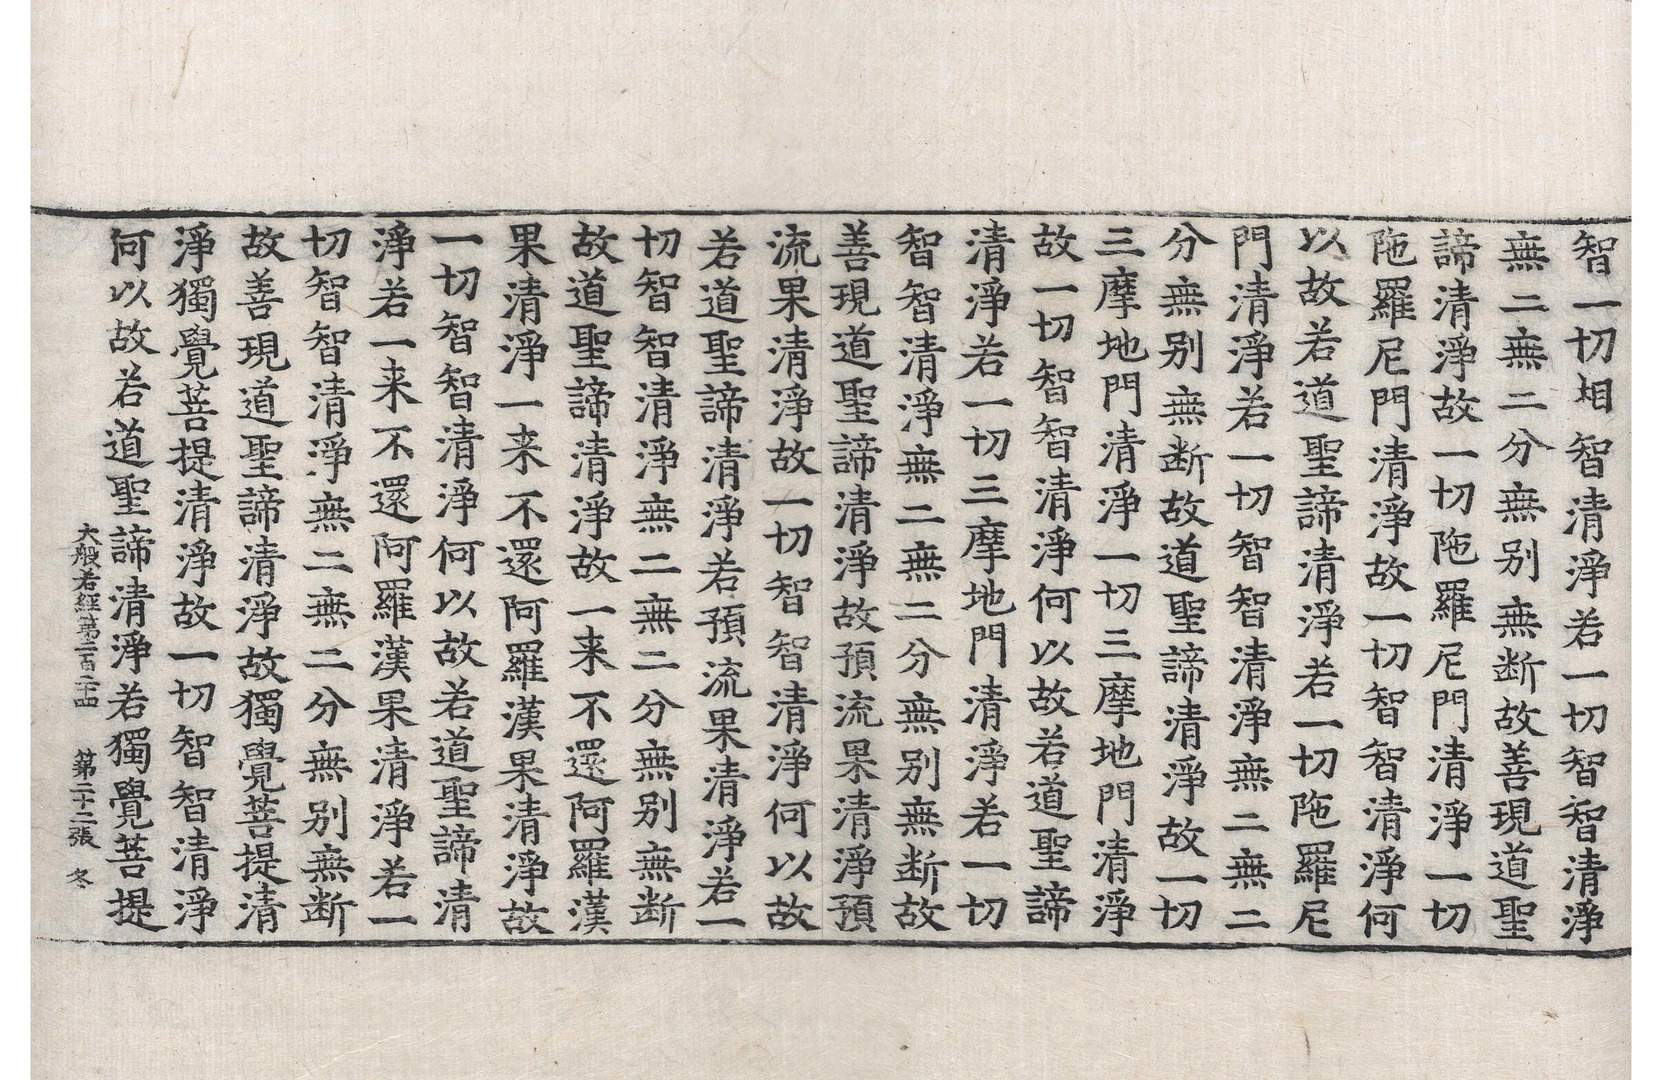 智一切相智清淨若一切智智清淨
無二無二分無別無断故善現道聖
諦清淨故一切陁羅尼門清淨一切
陁羅尼門清淨故一切智智清淨何
以故若道聖諦清淨若一切陁羅尼
門清淨若一切智智清淨無二無二
分無別無断故道聖諦清淨故一切
三摩地門清淨一切三摩地門清淨
故一切智智清淨何以故若道聖諦
清淨若一切三摩地門清淨若一切
智智清淨無二無二分無別無断故
善現道聖諦清淨故預流果清淨預
流果清淨故一切智智清淨何以故
若道聖諦清淨若預流果清淨若一
切智智清淨無二無二分無別無断
故道聖諦清淨故一来不還阿羅漢
果清淨一来不還阿羅漢果清淨故
一切智智清淨何以故若道聖諦清
淨若一来不還阿羅漢果清淨若一
切智智清淨無二無二分無別無断
故善現道聖諦清淨故獨覺菩提清
淨獨覺菩提清淨故一切智智清淨
何以故若道聖諦清淨若獨覺菩提
大般若經第二百二十四 第二十二張 冬